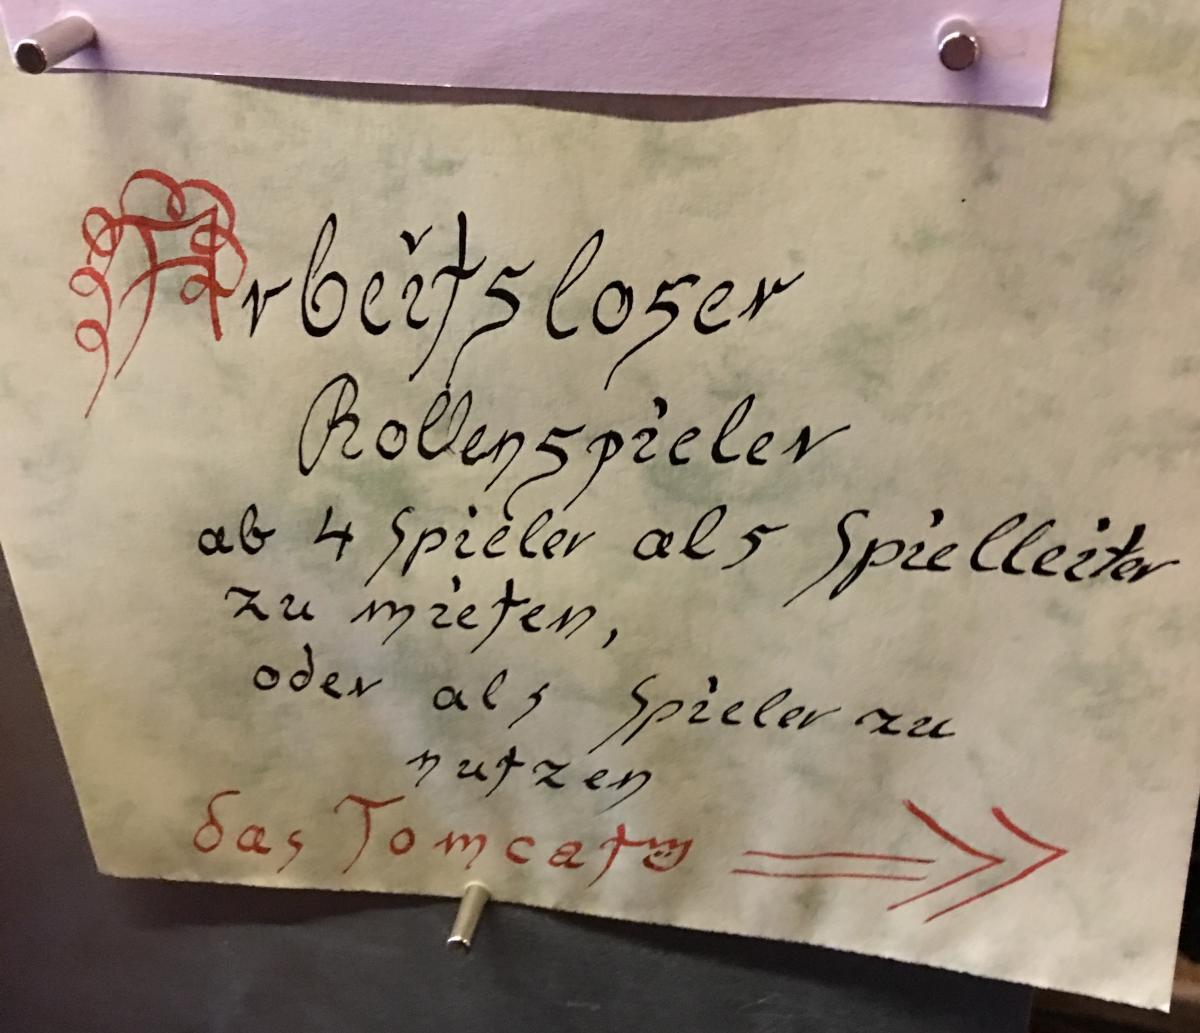 Arbeitsloser
Rollenspieler
ab 4 Spieler als Spielleiter
zu mieten,
oder als Spieler zu
nutzen
das Tomcat